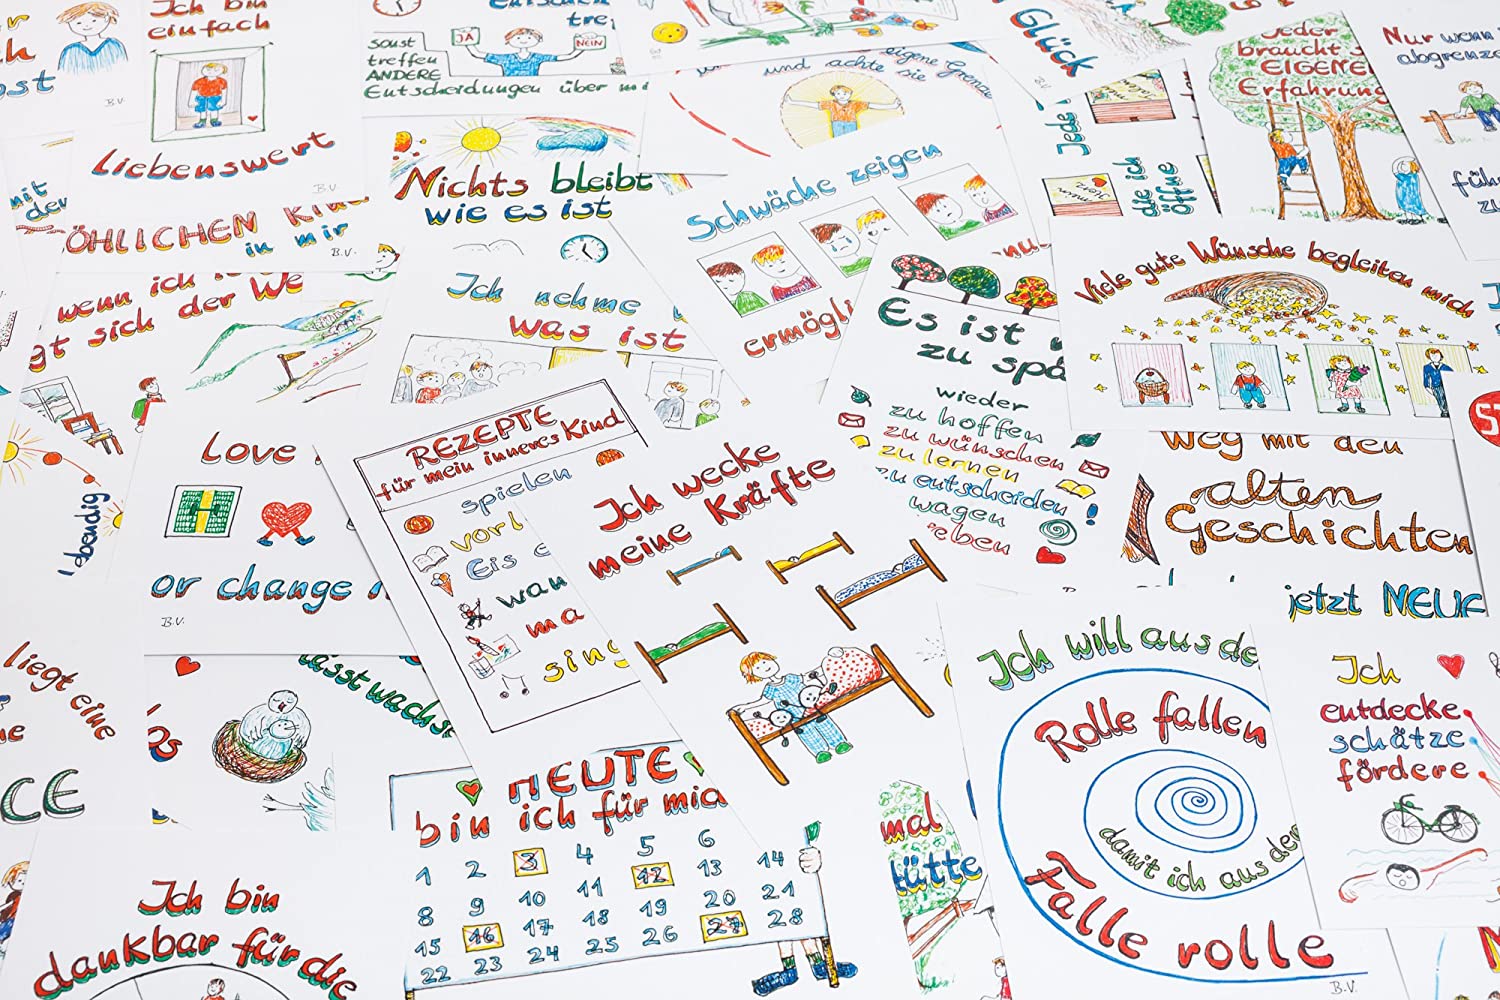 Ich bin
einfach
liebenswert
B.V.
treffen
JA
NEIN
sonst
treffen
ANDERE
Entscheidungen über mi
eigene Grenz
und achte sie
Glück
Jeder
braucht s
EIGENE
Erfahrung
Nur wenn
abgrenze
mit
der
ÖHLICHEN Kind
in mir
B.V.
Nichts bleibt
wie es ist
Schwäche zeigen
ermögli
Jede
die ich
öffne
Viele gute Wünsche begleiten mich
wenn ich
sich der We
Ich nehme
was ist
Es ist
zu spä
wieder
zu hoffen
zu wünschen
zu lernen
zu entscheiden
wagen
eben
Love
or change
B.V.
ebendig
REZEPTE
für mein inneres Kind
spielen
vorl
Eis e
wan
ma
sing
Ich wecke
meine Kräfte
Weg mit den
alten
Geschichten
jetzt NEUE
liegt eine
CE
lässt wachs
HEUTE
bin ich für mi
1 2 3 4 5 6
8 9 10 11 12 13 14
15 16 17 18 19 20 21
22 23 24 25 26 27 28
mal
Ich will aus de
Rolle fallen
damit ich aus der
Falle rolle
B.V.
Ich
entdecke
schätze
fördere
Ich bin
dankbar für die